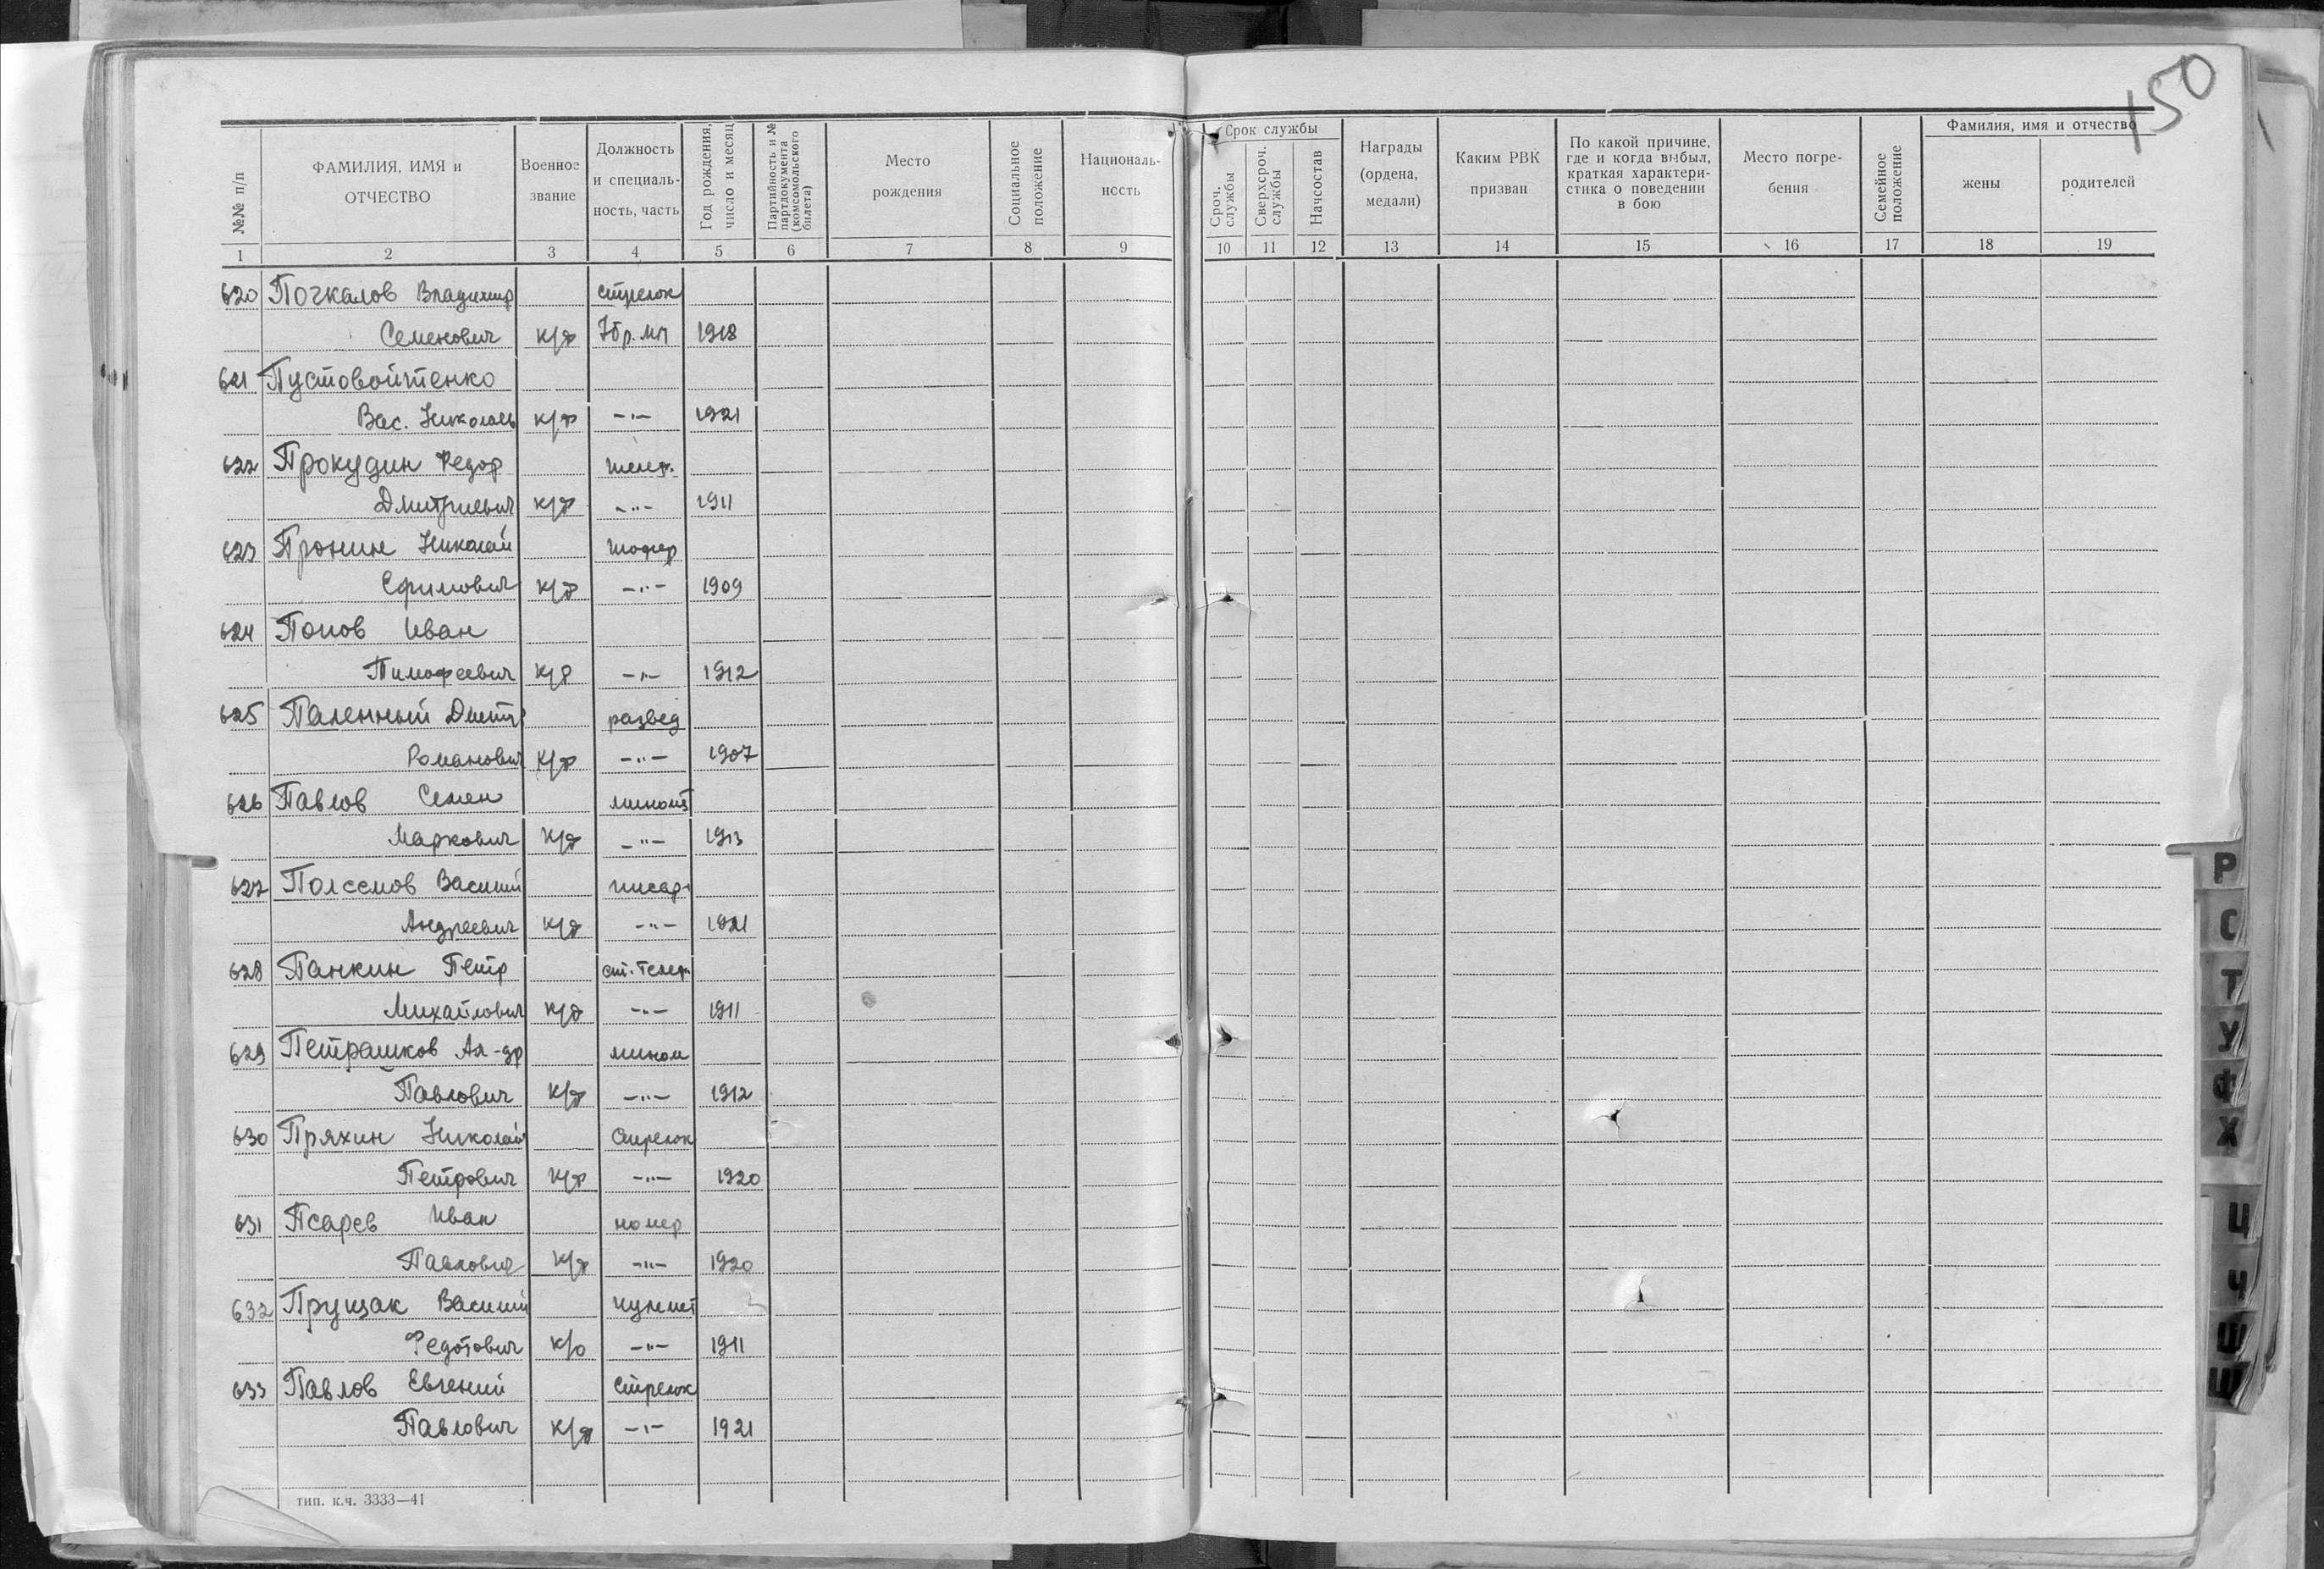 150
№№ п/п
ФАМИЛИЯ, ИМЯ и ОТЧЕСТВО
Военное звание
Должность и специаль- ность, часть
Год рождения, число и месяц
Партийность и № партдокумента (комсомольского билета)
Место рождения
Социальное положение
Националь- ность
Срок службы
Сроч. службы
Сверхсроч. службы
Начсостав
Награды (ордена, медали)
Каким РВК призван
По какой причине, где и когда выбыл, краткая характери- стика о поведении в бою
Место погре- бения
Семейное положение
Фамилия, имя и отчество
жены
родителей
1 2 3 4 5 6 7 8 9 10 11 12 13 14 15 16 17 18 19
620 Почкалов Владимир стрелок
Семенович к/р 7бр. МП 1918
621 Пустовойтенко
Вас. Николаев к/р -"- 1921
622 Прокудин Федор телеф.
Дмитриевич к/р -"- 1911
623 Пронин Николай шофер
Ефимович к/р -"- 1909
624 Попов Иван
Тимофеевич к/р -"- 1912
625 Паленный Дмитр развед
Романович к/р -"- 1907
626 Павлов Семен миномет
Маркович к/р -"- 1913
627 Василий писарь
Андреевич к/р -"- 1921
628 Панкин Петр ст. телеф.
Михайлович к/р -"- 1911
629 Петрашков Ал-др мином
Павлович к/р -"- 1912
630 Пряхин Николай Стрелок
Петрович к/р -"- 1920
631 Псарев Иван номер
Павлович к/р -"- 1920
632 Прущак Василий пулемет
Федотович к/о -"- 1911
633 Павлов Евгений Стрелок
Павлович к/р -"- 1921
тип. к.ч. 3333—41
Р
С
Т
У
Ф
Х
Ц
Ч
Ш
Щ